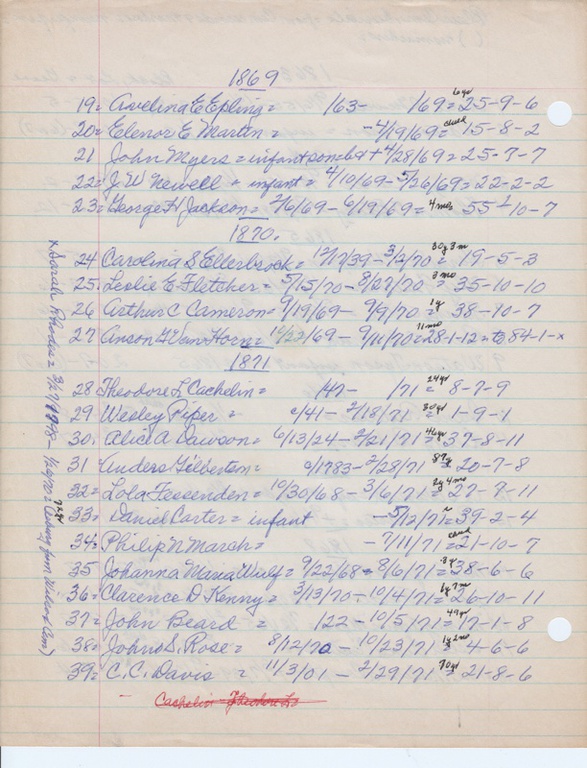 1869
19= Avelina E. Epling = 163- 169= 6yr 25-9-6
20= Elenor E. Martin = -4/19/69= child 15-8-2
21 John Myers = infant son=69+4/28/69=25-3-7
22= J. W. Newell = infant = 4/10/69-5/26/69=22-2-2
23= George H. Jackson= 2/6/69-6/19/69= 4mos 55-10-7
1870.
24= Carolina S. Ellerbrock= 12/17/39-3/12/70= 30y 3m 19-5-3
25= Leslie E. Fletcher= 5/15/70-8/27/70= 3mo 35-10-10
26 Arthur C. Cameron= 9/19/69- 9/9/70= 1y 38-10-7
27 Anson G. Van Horn= 10/22/69-9/11/70= 11mo 28-1-12= to 84-1-x
1871
28 Theodore L. Cachelin= 147- /71= 24yr 8-7-9
29 Wesley Piper = c/41-2/18/71= 30yr 1-9-1
30. Alice A. Dawson= 6/13/24-2/21/71= 46yr 37-8-11
31 Anders Gilberten= c/1783-2/28/71= 87y 20-7-8
32= Lola Fessenden= 10/30/68-3/6/71= 2y 4mo 27-9-11
33= Daniel Carter= infant -5/12/71= 39-2-4
34= Philip N. March= -7/11/71= child 21-10-7
35 Johanna Maria Wulf= 9/22/68=8/6/71= 3y 38-6-6
36= Clarence D. Kenny= 3/13/70-10/4/71= 1y 7m 26-10-11
37= John Beard = 122-10/5/71= 49yr 17-1-8
38= Johns S. Rose= 8/12/70-10/23/71= 1y 2mo 4-6-6
39= C. C. Davis = 11/3/01-2/29/71= 70yr 21-8-6
Cachelin- Theodore L.
x Sarah Rhodes= 72yr from Wilson Cem)